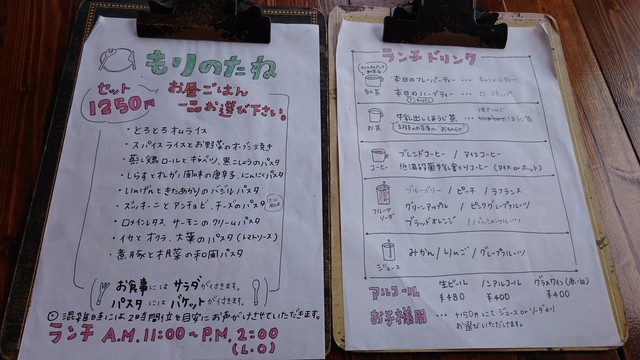 もりのたね
セット
1250円
お昼ごはん
一品お選び下さい。
・とろとろオムライス
・スパイスライスとお野菜のオーブン焼き
・蒸し鶏ロールとキャベツ、黒こしょうのパスタ
・しらすとオレガノ風味の唐辛子、にんにくパスタ
・いんげんときたあかりのバジルパスタ
・ズッキーニとアンチョビ、チーズのパスタ
・ロメインレタス、サーモンのクリームパスタ
・イカとオクラ、大葉のパスタ(トマトソース)
・煮豚と根菜の和風パスタ
お食事にはサラダが付きます。
パスタにはバゲットが付きます。
混雑時には2時間位を目安にお声がけさせていただきます。
ランチ A.M. 11:00~P.M. 2:00
(L.O)
ランチドリンク
本日のフレーバーティー ・・・
本日のハーブティー ・・・
お茶
牛乳出しほうじ茶 ・・・
コーヒー
ブレンドコーヒー / アイスコーヒー
低温殺菌牛乳割りコーヒー (アイス or ホット)
フルーツ
ソーダ
ブルーベリー / ピーチ / ラフランス
グリーンアップル / ピンクグレープフルーツ
ブラッドオレンジ / パッションフルーツ
ジュース
みかん / りんご / グレープフルーツ
アルコール
生ビール
¥480
ノンアルコール
¥400
グラスワイン(赤・白)
¥400
お子様用
・・・ +150円にてジュース or ソーダより
お選びいただけます。